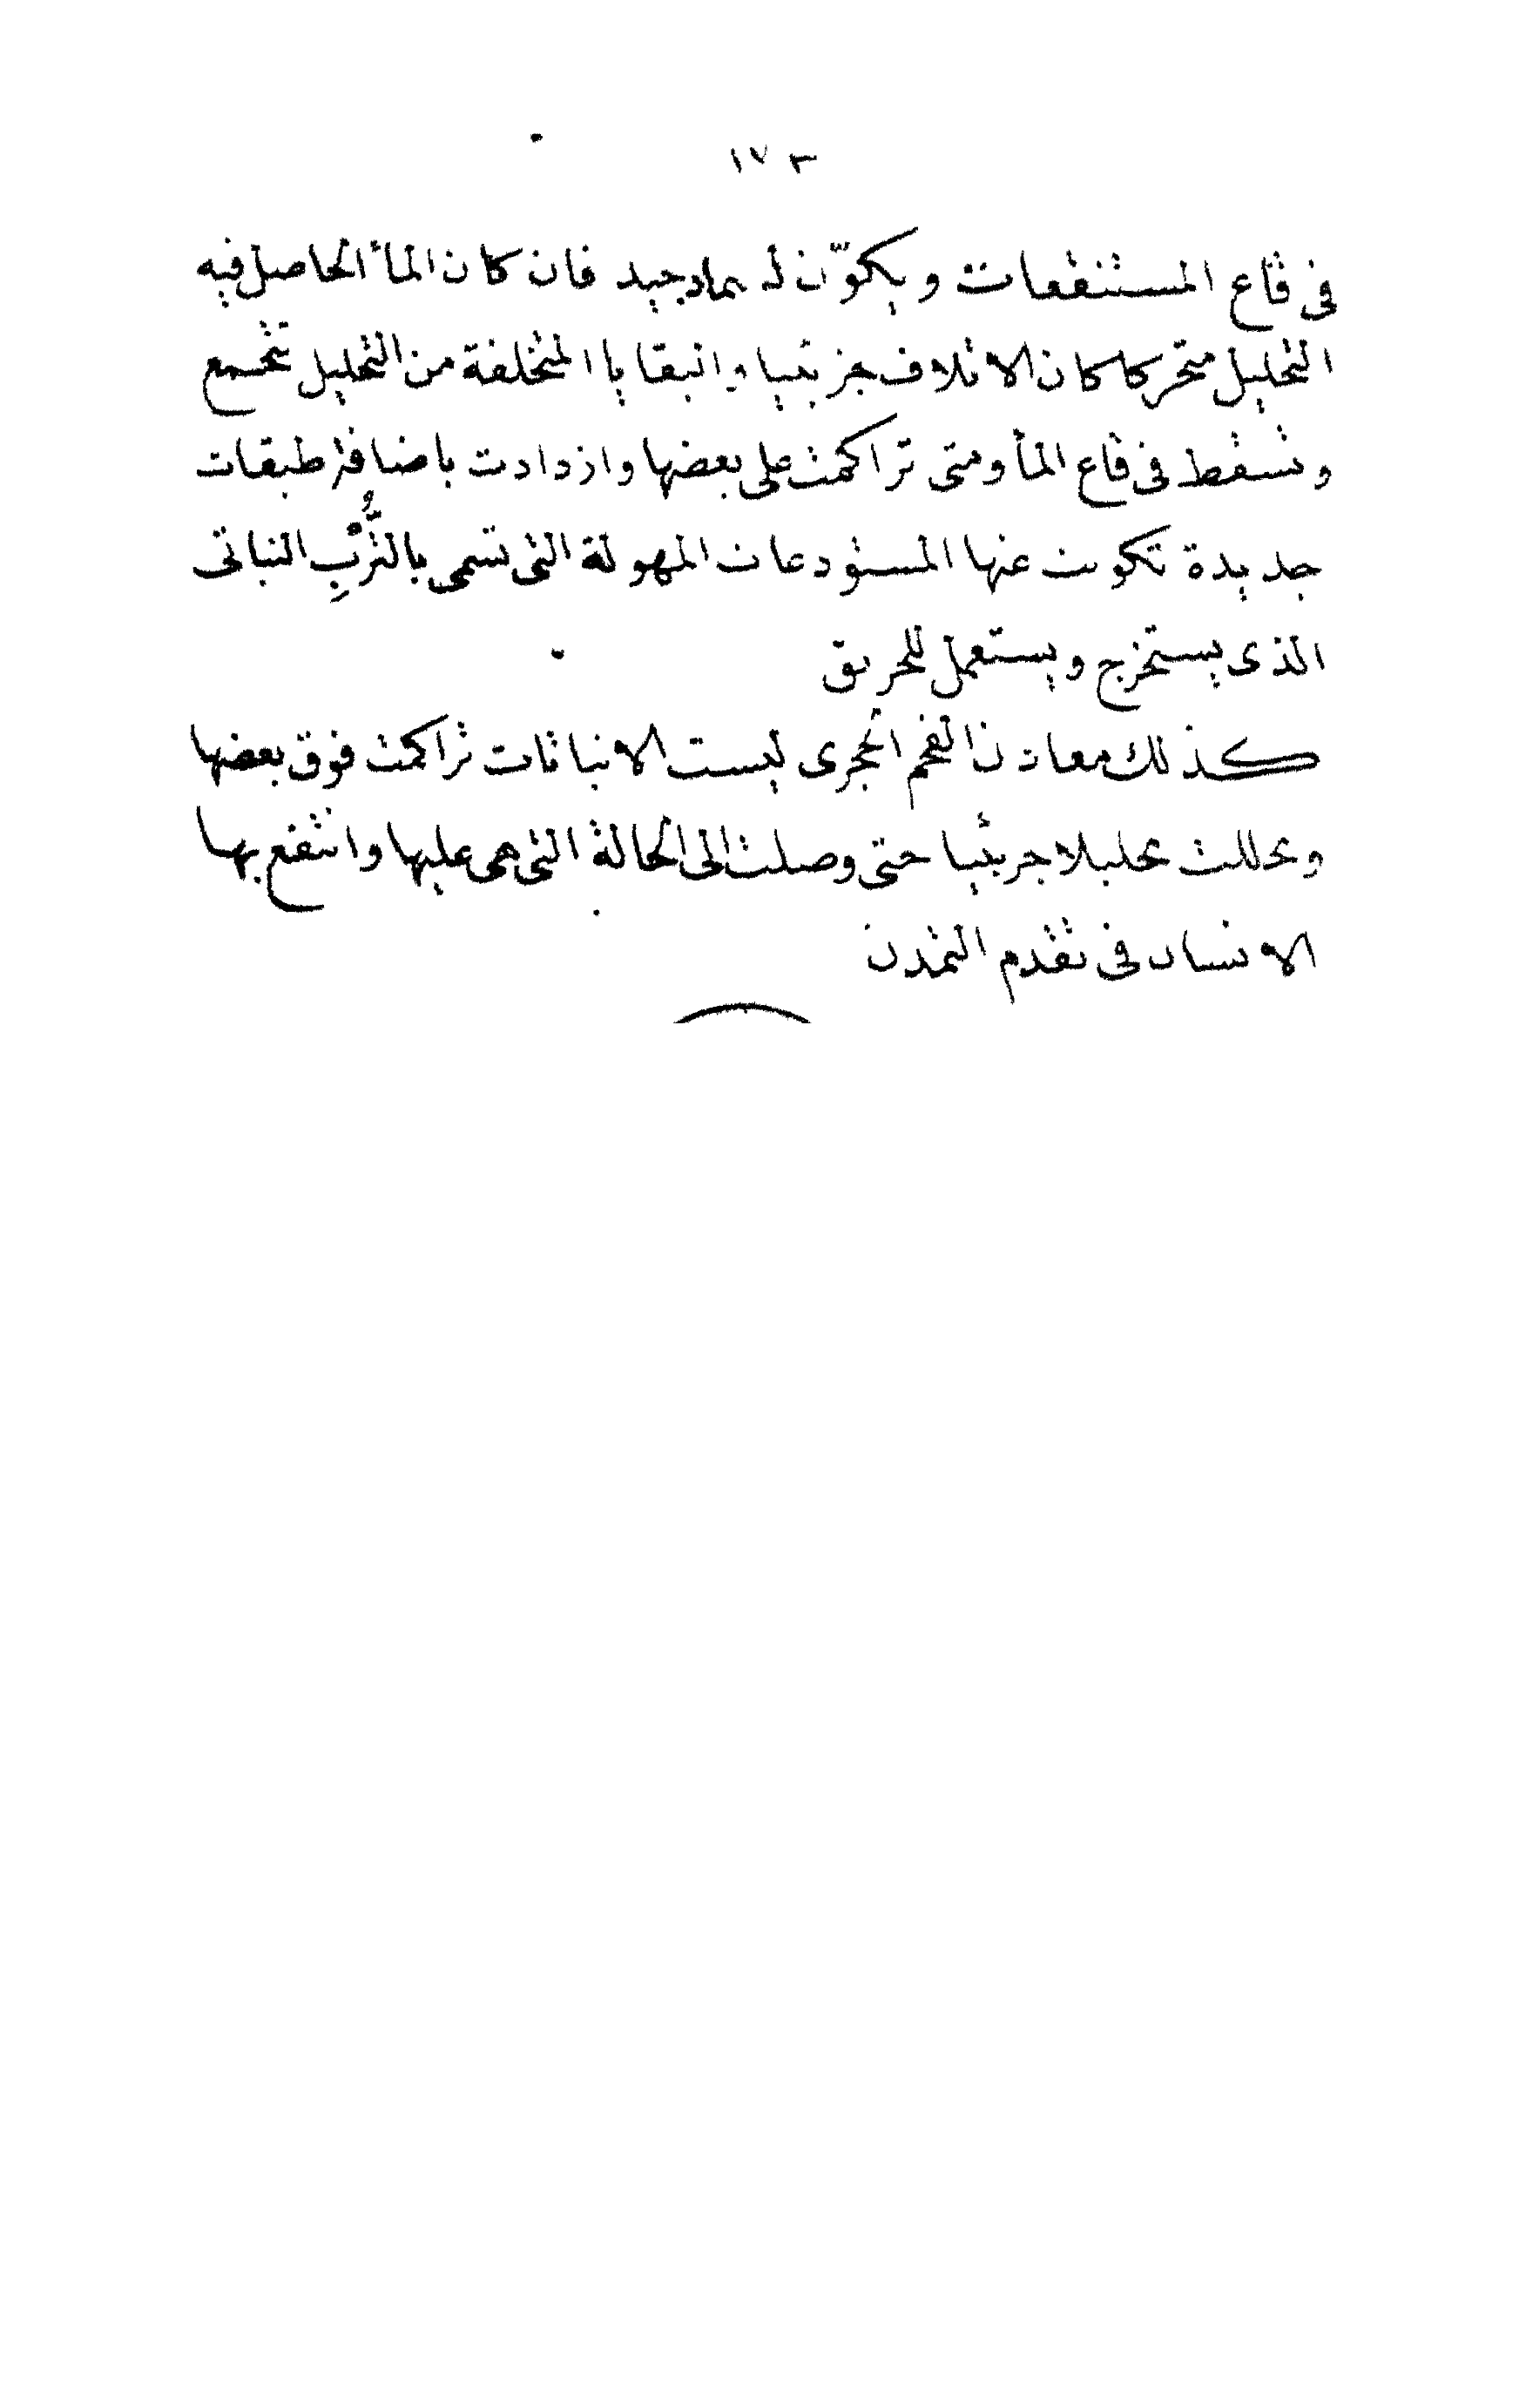 ١٧٣
فى قاع المستنقعات ويكوّن له بماد جيد فان كان المأ الحاصل فيه
التحليل متحركا كان الاتلاف جزئييا والبقايا المتخلفة من التحليل تتجمع
وتسقط فى قاع المأ ومتى تراكمت على بعضها وازدادت باضافة طبقات
جديدة تكونت عنها المستودعات المهولة التى تسمى بالتُّرْبِ النباتى
الذى يستخرج ويستعمل للحريق
كذلك معادن الفحم الحجرى ليست الا نباتات تراكمت فوق بعضها
وتحللت تحليلا جزئييا حتى وصلت الى الحالة التى هى عليها وانتفع بها
الانسان فى تقدم التمدن